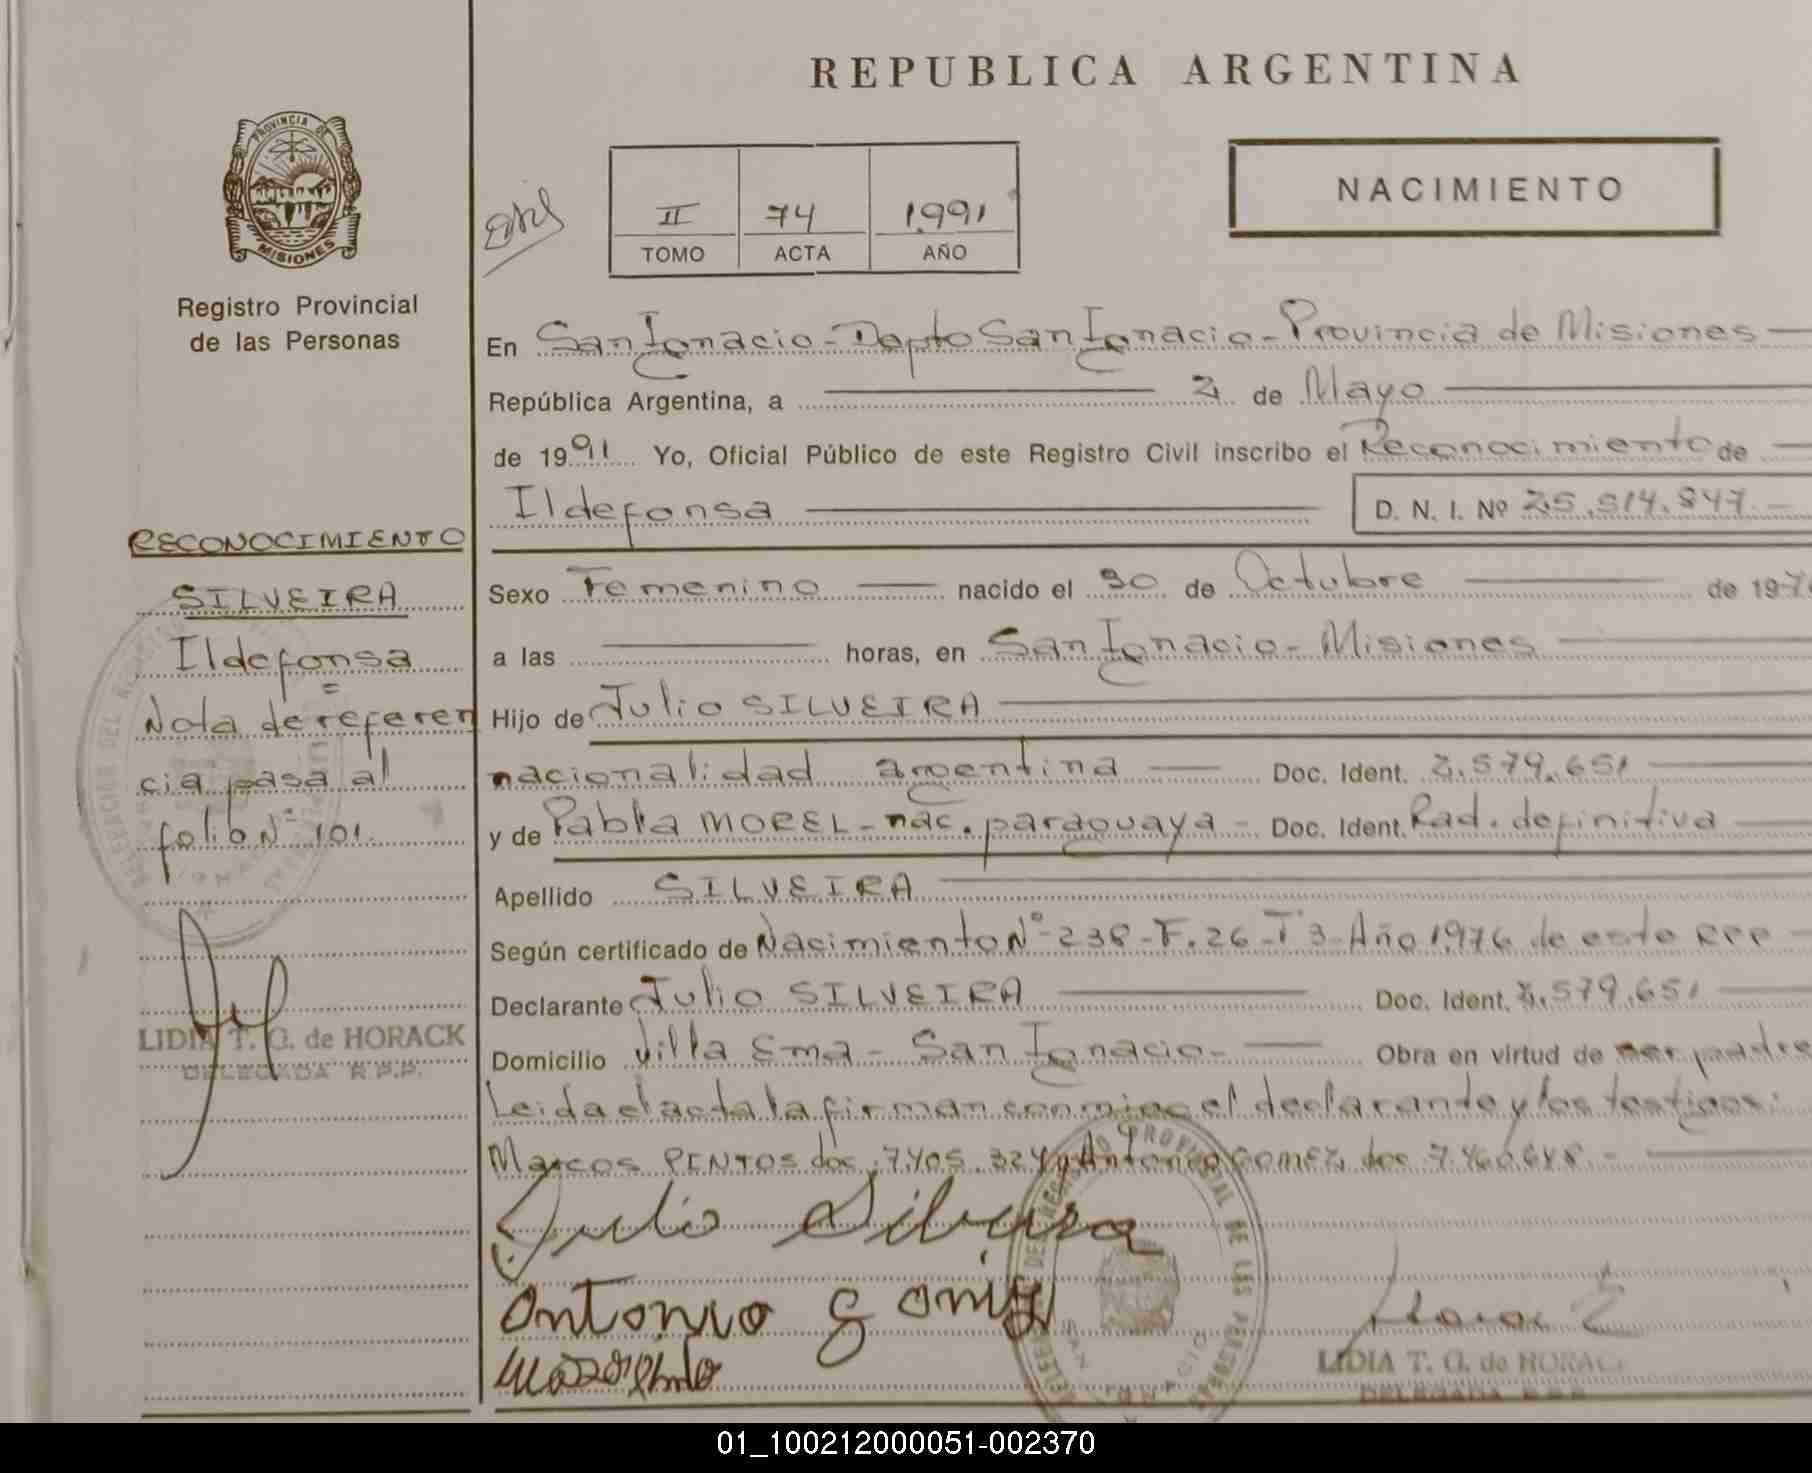 REPUBLICA ARGENTINA
NACIMIENTO
PROVINCIA DE
MISIONES
Registro Provincial
de las Personas
II 74 1991
TOMO ACTA AÑO
En San Ignacio - Depto San Ignacio - Provincia de Misiones
República Argentina, a 2 de Mayo
de 1991 Yo, Oficial Público de este Registro Civil inscribo el Reconocimiento de
Ildefonsa D. N. I. Nº 25.514.847.-
Sexo Femenino nacido el 30 de Octubre de 197
a las horas, en San Ignacio - Misiones
Hijo de Julio SILVEIRA
nacionalidad argentina Doc. Ident. 2.579.651
y de Pabla MOREL - nac. paraguaya - Doc. Ident. Rad. definitiva
Apellido SILVEIRA
Según certificado de Nacimiento Nº 238 - F. 26 - T 3 - Año 1.976 de esta RPP -
Declarante Julio SILVEIRA Doc. Ident. 2.579.651
Domicilio Villa Ema - San Ignacio - Obra en virtud de ser padre
Leida el acta la firman conmigo el declarante y los testigos:
Marcos PINTOS doc. 7.405.324 y Antonio GOMEZ doc 7.460.648. -
Julio Silveira
Antonio Gomez
LIDIA T. G. de HORACK
DELEGADA R.P.P.
RECONOCIMIENTO
SILVEIRA
Ildefonsa
=
Nota de referen
cia pasa al
folio Nº 101.
LIDIA T. G. de HORACK
DELEGADA R.P.P.
01_100212000051-002370